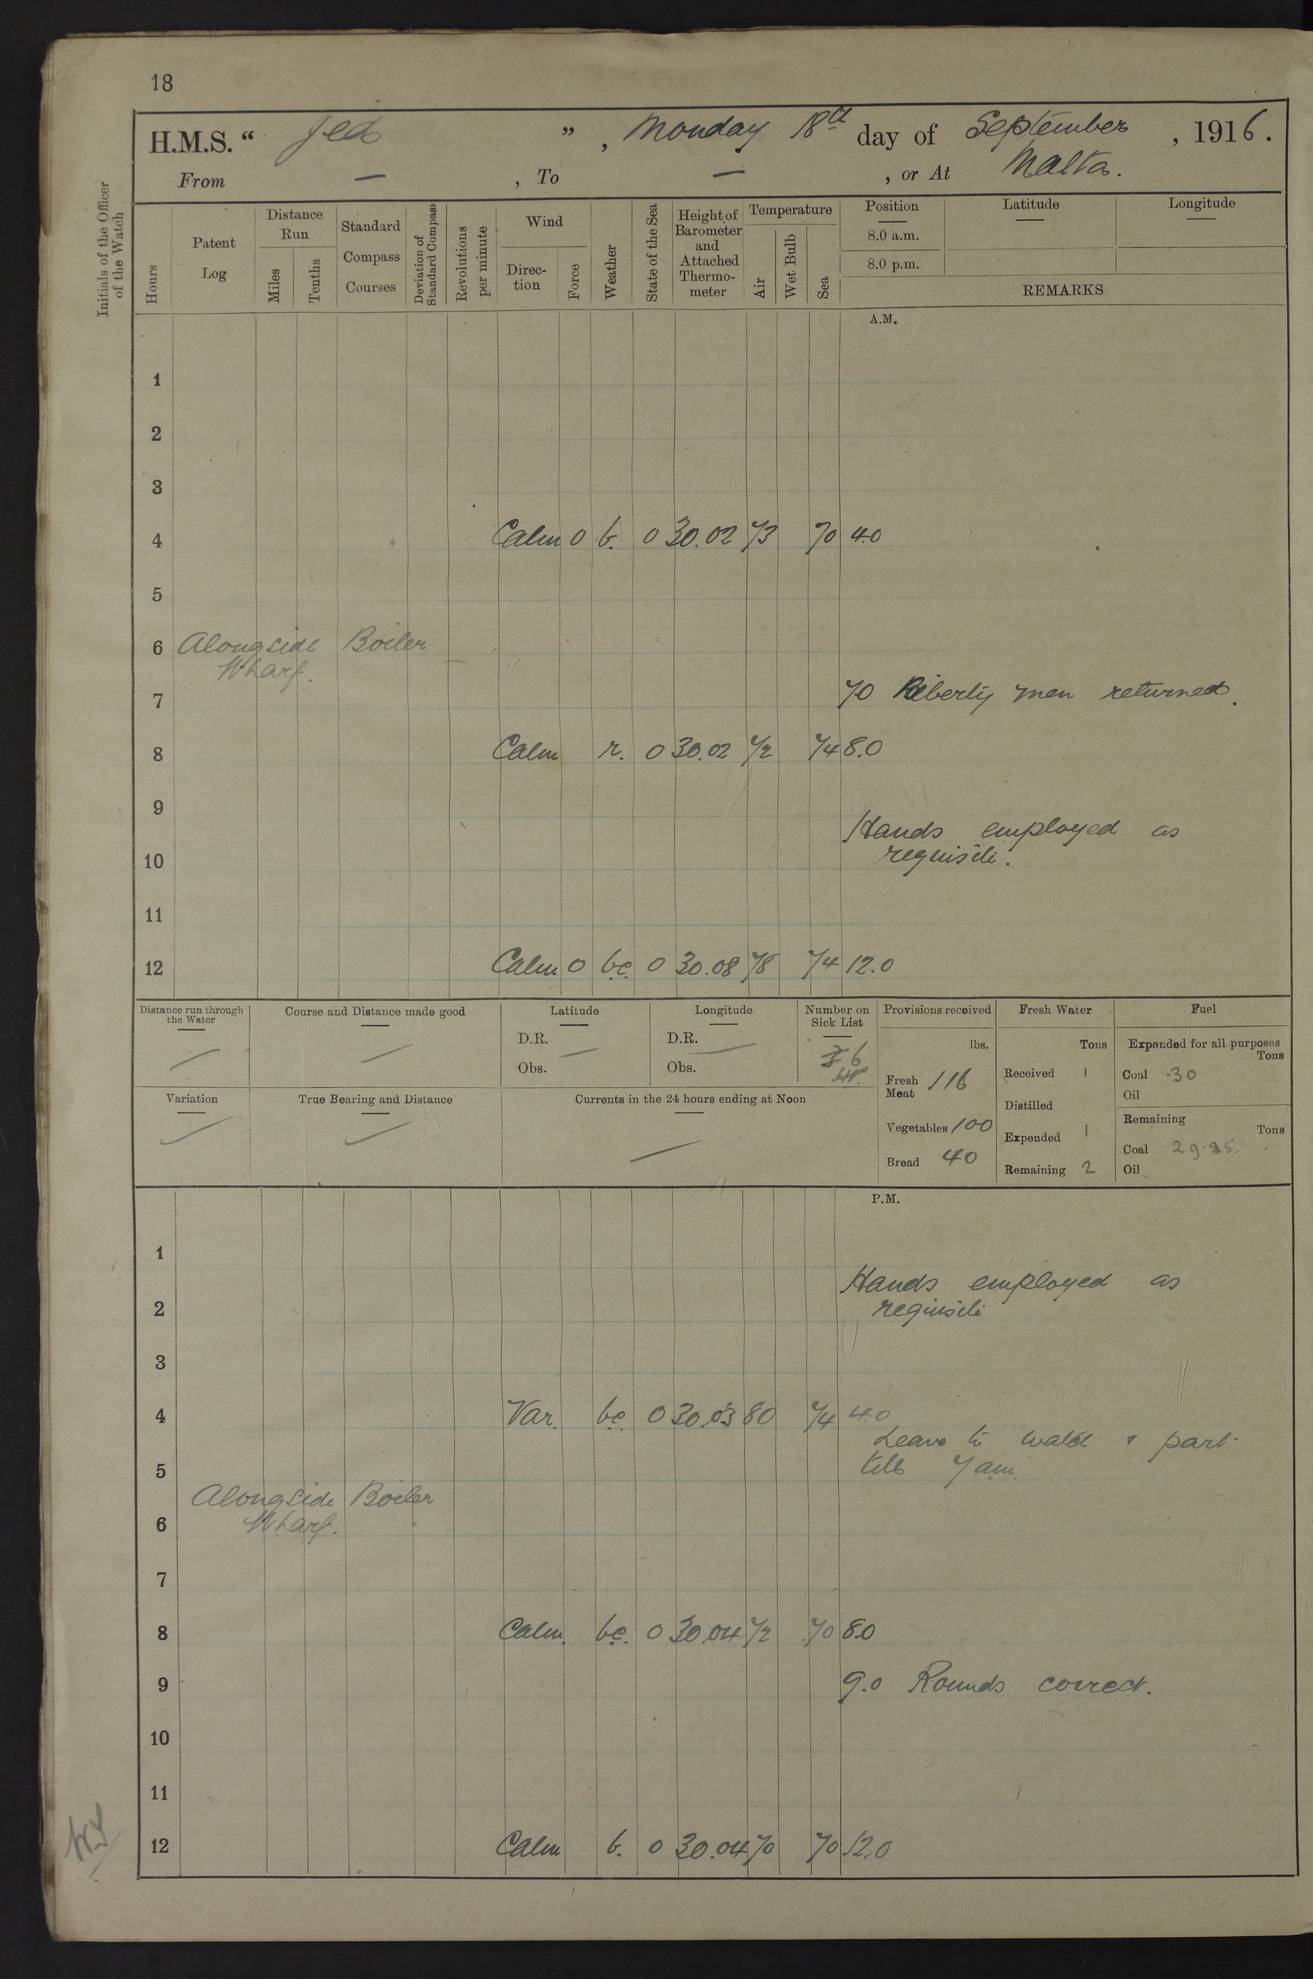 18
H.M.S. “ Jed ” , Monday 18th day of September , 1916.
From — , To — , or At Malta.
Initials of the Officer of the Watch
Hours
Patent Log
Distance Run
Miles
Tenths
Standard Compass Courses
Deviation of Standard Compass
Revolutions per minute
Wind
Direction
Force
Weather
State of the Sea
Height of Barometer and Attached Thermometer
Temperature
Air
Wet Bulb
Sea
Position
8.0 a.m.
8.0 p.m.
Latitude
Longitude
REMARKS
A.M.
1
2
3
4 Calm 0 b. 0 30.02 73 70 4.0
5
6 Alongside Boiler
Wharf.
7 7.0 Liberty men returned.
8 Calm r. 0 30.02 72 74 8.0
9
Hands employed as
10 requisite.
11
12 Calm 0 bc 0 30.08 78 74 12.0
Distance run through the Water
Course and Distance made good
Latitude
D.R. —
Obs.
Longitude
D.R. —
Obs.
Number on Sick List
6
Provisions received
lbs.
Fresh Meat 116
Vegetables 100
Bread 40
Fresh Water
Tons
Received 1
Distilled
Expended 1
Remaining 2
Fuel
Expended for all purposes
Tons
Coal .30
Oil
Remaining
Tons
Coal
Oil
Variation
True Bearing and Distance
Currents in the 24 hours ending at Noon
P.M.
1
Hands employed as
2 requisite
3
4 Var. bc 0 30.03 80 74 4.0
Leave to watch & part
5 till 7 am.
Alongside Boiler
6 Wharf.
7
8 Calm. bc. 0 30.04 72 70 8.0
9 9.0 Rounds correct.
10
11
12 Calm b. 0 30.04 70 70 12.0